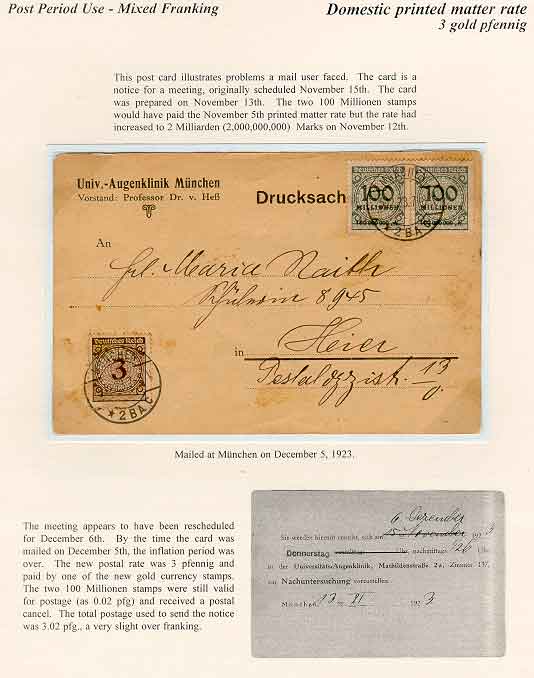 Post Period Use - Mixed Franking
Domestic printed matter rate
3 gold pfennig
This post card illustrates problems a mail user faced. The card is a
notice for a meeting, originally scheduled November 15th. The card
was prepared on November 13th. The two 100 Millionen stamps
would have paid the November 5th printed matter rate but the rate had
increased to 2 Milliarden (2,000,000,000) Marks on November 12th.
Univ.-Augenklinik München
Vorstand: Professor Dr. v. Heß
Drucksach
Deutsches Reich
100
MILLIONEN
Deutsches Reich
100
MILLIONEN
* 2 B A C
An
Frl. Maria
8945
in Heier
Pestalozzistr. 13
Deutsches Reich
3
* 2 B A C
Mailed at München on December 5, 1923.
The meeting appears to have been rescheduled
for December 6th. By the time the card was
mailed on December 5th, the inflation period was
over. The new postal rate was 3 pfennig and
paid by one of the new gold currency stamps.
The two 100 Millionen stamps were still valid
for postage (as 0.02 pfg) and received a postal
cancel. The total postage used to send the notice
was 3.02 pfg., a very slight over franking.
6 Dezember
Sie werden hiermit ersucht, sich am 15 November 1923
Donnerstag vormittags Uhr, nachmittags Uhr
in der Universitäts-Augenklinik, Mathildenstraße 2a, Zimmer 137,
zur Nachuntersuchung vorzustellen.
München, 13 XI 1923